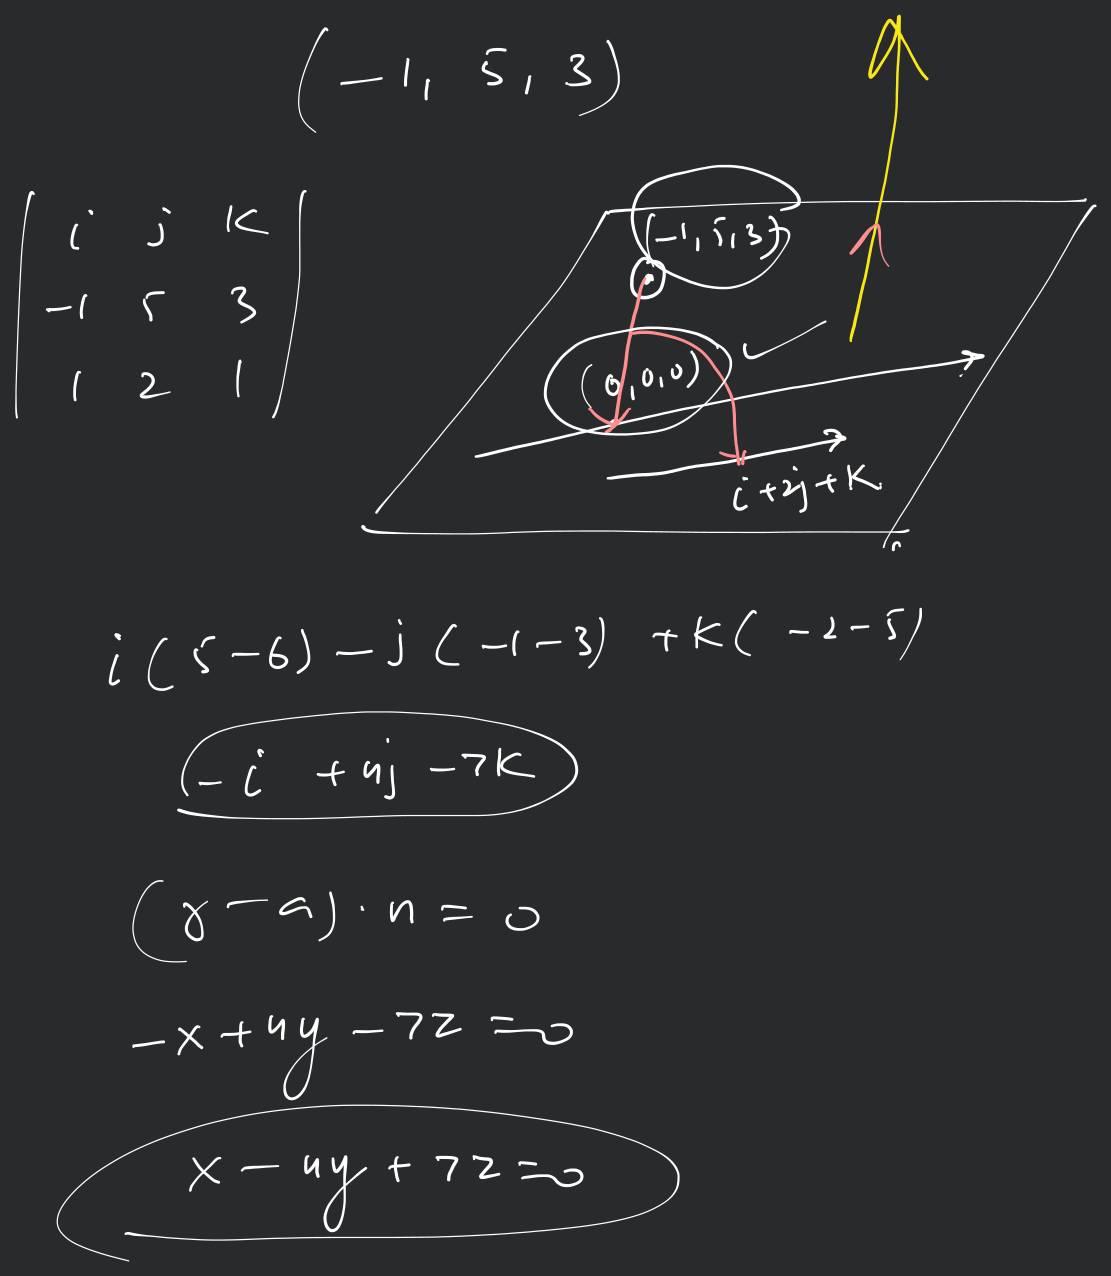 (-1, 5, 3)
| i j k |
| -1 5 3 |
| 1 2 1 |
(-1, 5, 3)
(0, 0, 0)
i+2j+k
i(5-6)-j(-1-3)+k(-2-5)
-i+4j-7k
(r-a)·n=0
-x+4y-7z=0
x-4y+7z=0